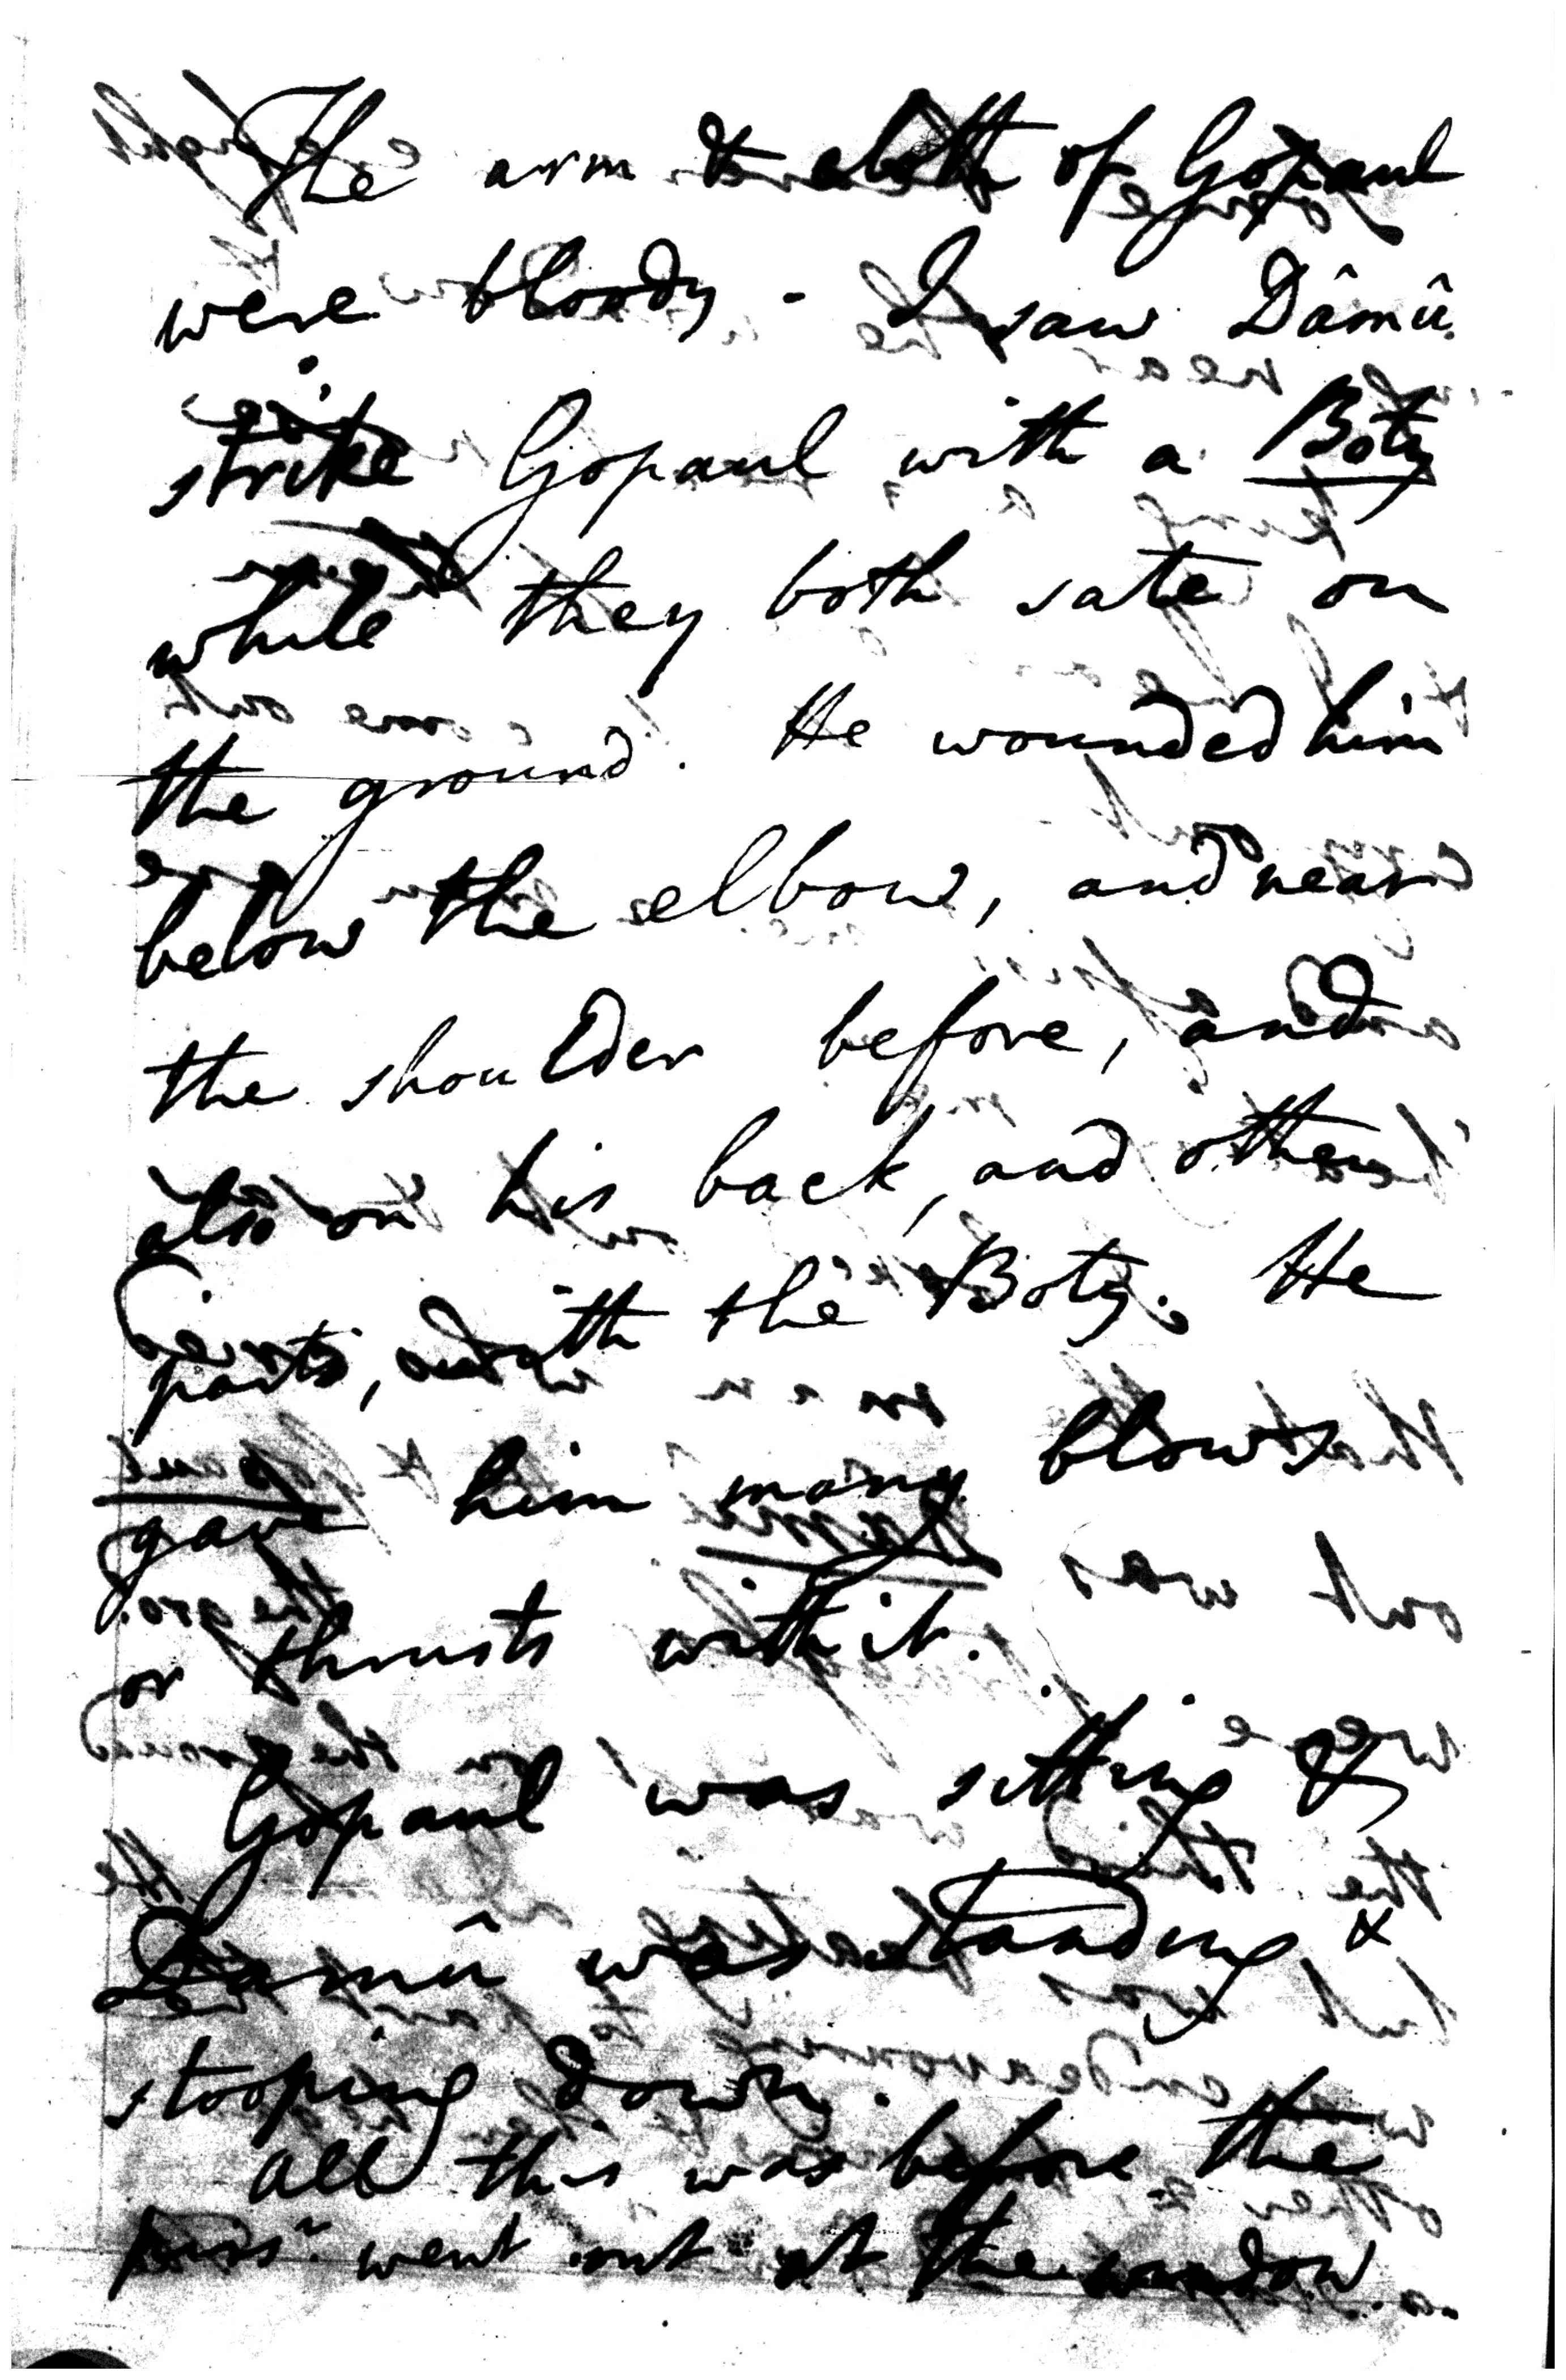 The arm & cloth of Gopaul
were bloody - I saw Dâmû
strike Gopaul with a Boty
while they both sate on
the ground. He wounded him
below the elbow, and near
the shoulder before, and
also on his back, and other
parts, with the Boty. He
gave him many blows
or thrusts with it.
Gopaul was sitting &
Dâmû was standing &
stooping down.
All this was before the
went out at the window.